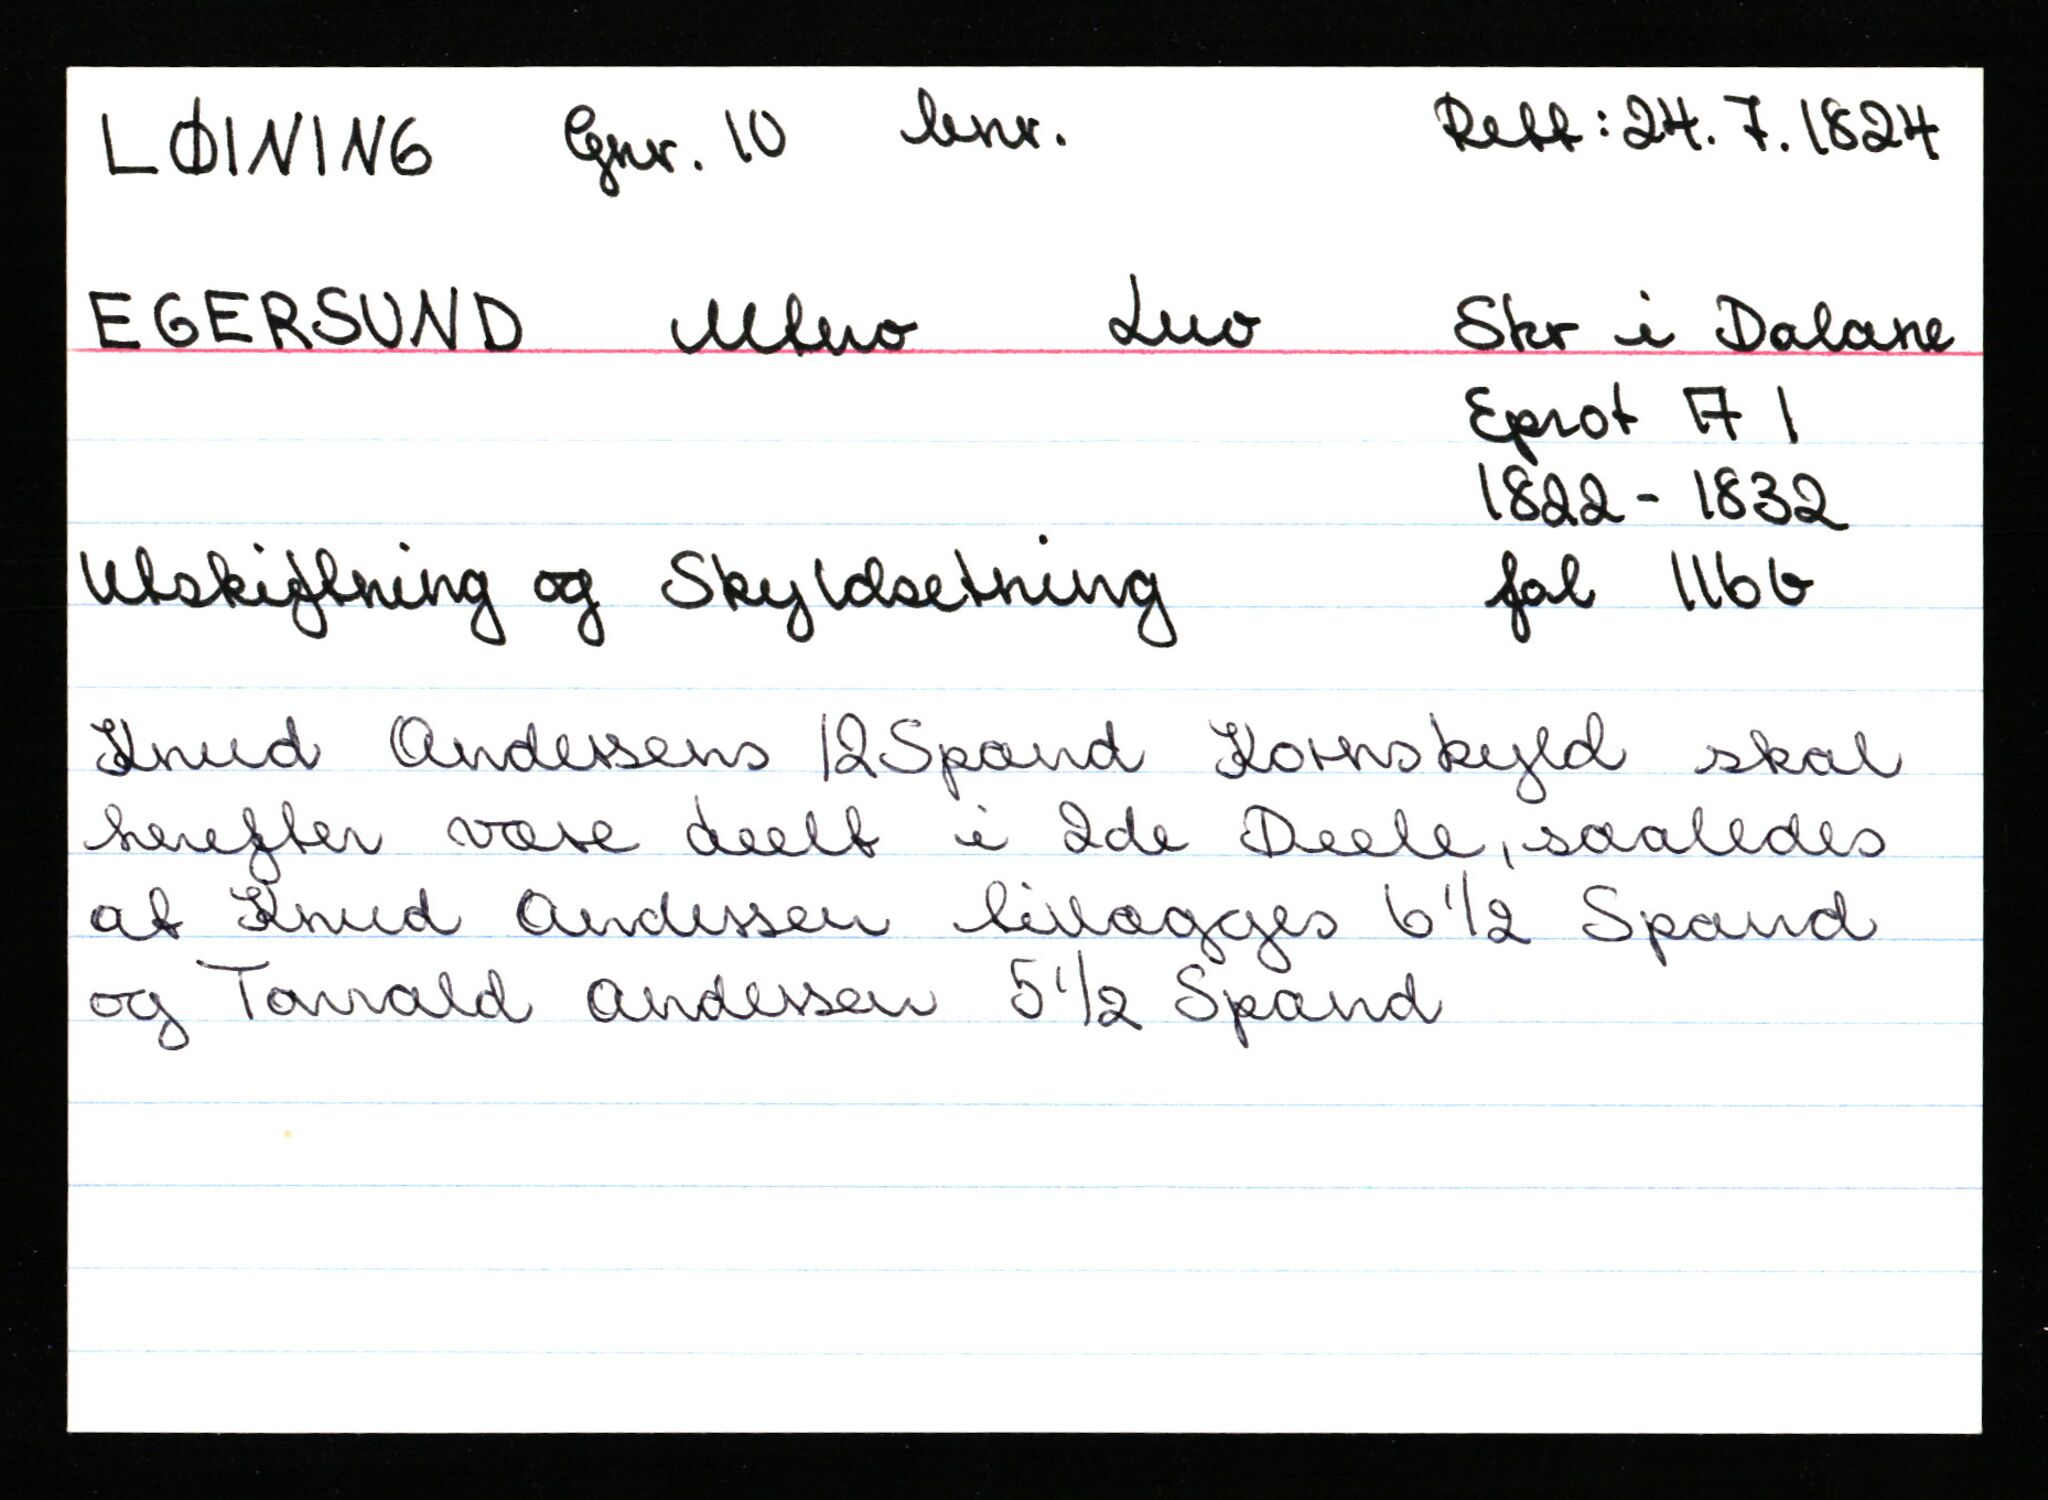 LØINING Gnr. 10 bnr. Rett: 24.7.1824
EGERSUND Mtno Lno Skr i Dalane
Eprot A 1
1822 - 1832
Utskiftning og Skyldsetning fol 116b
Knud Anderssens 12 Spand Kornskyld skal
herefter være deelt i 2de Deele, saaledes
at Knud Anderssen tillægges 6 1/2 Spand
og Tarrald Anderssen 5 1/2 Spand